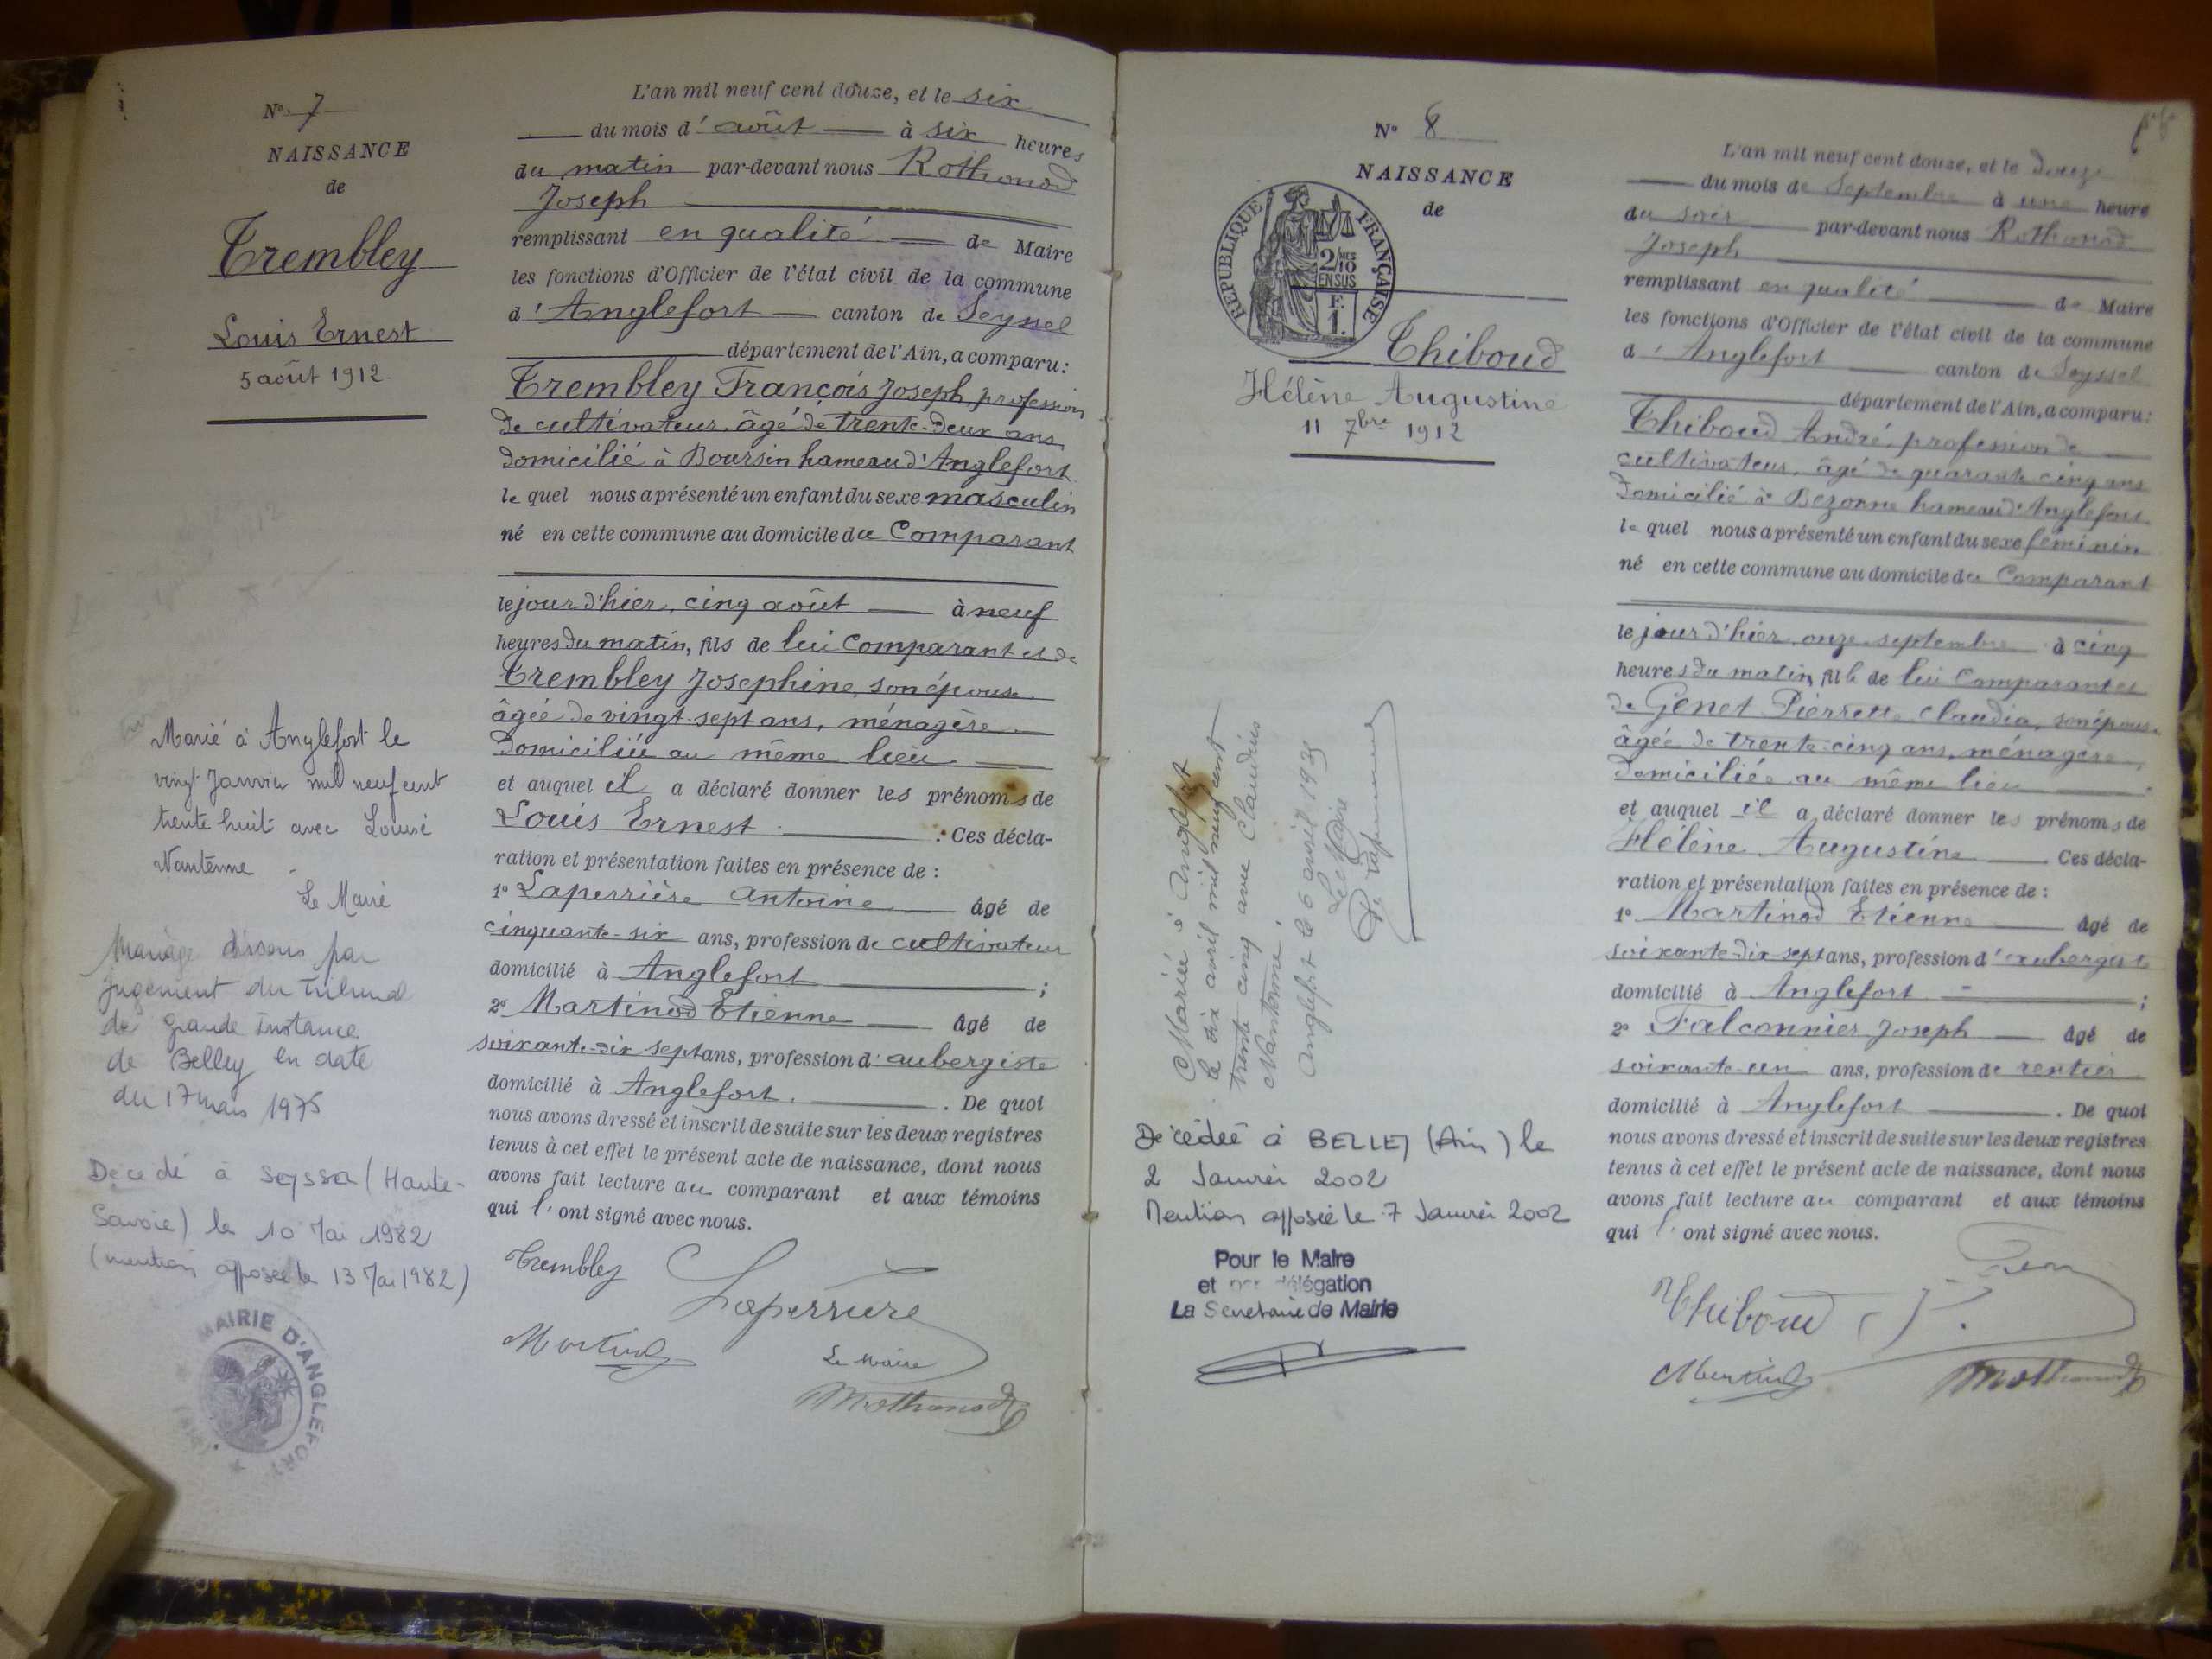 N° 7
NAISSANCE
de
Trembley
Louis Ernest
5 août 1912.
Marié à Anglefort le
vingt Janvier mil neuf cent
trente huit avec Louise
Nanterme
Le Maire
Mariage dissous par
jugement du Tribunal
de grande instance
de Belley en date
du 17 mars 1975
Décédé à Seyssel (Haute-
Savoie) le 10 Mai 1982
(mention apposée le 13 Mai 1982)
MAIRIE D'ANGLEFORT
L'an mil neuf cent douze, et le six
du mois d'août à six heures
du matin par-devant nous Rothonod
Joseph
remplissant en qualité de Maire
les fonctions d'Officier de l'état civil de la commune
d'Anglefort canton de Seyssel
département de l'Ain, a comparu :
Trembley François Joseph, profession
de cultivateur, âgé de trente-deux ans
domicilié à Boursin hameau d'Anglefort
le quel nous a présenté un enfant du sexe masculin
né en cette commune au domicile du Comparant
le jour d'hier, cinq août à neuf
heures du matin, fils de lui Comparant et de
Trembley Josephine, son épouse
âgée de vingt-sept ans, ménagère
domiciliée au même lieu
et auquel il a déclaré donner les prénoms de
Louis Ernest : Ces décla-
ration et présentation faites en présence de :
1° Laperrière Antoine âgé de
cinquante-six ans, profession de cultivateur
domicilié à Anglefort ;
2° Martinod Etienne âgé de
soixante-dix sept ans, profession d'aubergiste
domicilié à Anglefort. . De quoi
nous avons dressé et inscrit de suite sur les deux registres
tenus à cet effet le présent acte de naissance, dont nous
avons fait lecture au comparant et aux témoins
qui l'ont signé avec nous.
Trembley
Laperriere
Martinod
Le Maire
Rothonod
N° 8
NAISSANCE
de
REPUBLIQUE FRANÇAISE
2/10
EN SUS
F.
1.
Thiboud
Hélène Augustine
11 7bre 1912
Mariée à Anglefort
le six avril mil neuf cent
trente cinq avec Claudius
Nanterme.
Anglefort le 6 avril 1935
Le Maire
Décédée à BELLEY (Ain) le
2 Janvier 2002
Mention apposée le 7 Janvier 2002
Pour le Maire
et par délégation
La Secrétaire de Mairie
L'an mil neuf cent douze, et le douze
du mois de Septembre à une heure
du soir par-devant nous Rothonod
Joseph
remplissant en qualité de Maire
les fonctions d'Officier de l'état civil de la commune
d'Anglefort canton de Seyssel
département de l'Ain, a comparu :
Thiboud André, profession de
cultivateur, âgé de quarante cinq ans
domicilié à Bezonne hameau d'Anglefort
le quel nous a présenté un enfant du sexe féminin
né en cette commune au domicile du Comparant
le jour d'hier, onze septembre à cinq
heures du matin, fille de lui Comparant et
de Genet Pierrette Claudia, son épouse
âgée de trente-cinq ans, ménagère,
domiciliée au même lieu
et auquel il a déclaré donner les prénoms de
Hélène Augustine Ces décla-
ration et présentation faites en présence de :
1° Martinod Etienne âgé de
soixante-dix-sept ans, profession d'aubergiste
domicilié à Anglefort ;
2° Falconnier Joseph âgé de
soixante-un ans, profession de rentier
domicilié à Anglefort . De quoi
nous avons dressé et inscrit de suite sur les deux registres
tenus à cet effet le présent acte de naissance, dont nous
avons fait lecture au comparant et aux témoins
qui l'ont signé avec nous.
Thiboud
Martinod
Rothonod